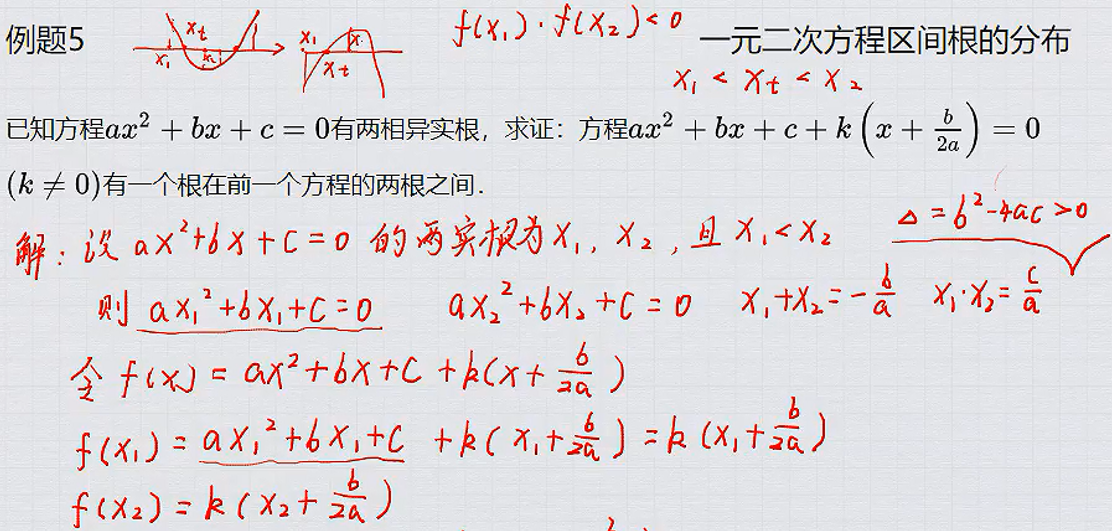 例题5
x₁ x_t x₂
x₁ x_t x₂
f(x₁)·f(x₂)<0
一元二次方程区间根的分布
x₁ < x_t < x₂
已知方程ax²+bx+c=0有两相异实根，求证：方程ax²+bx+c+k(x+b/2a)=0
(k≠0)有一个根在前一个方程的两根之间.
Δ=b²-4ac>0
解：设 ax²+bx+c=0 的两实根为x₁, x₂, 且x₁<x₂
则 ax₁²+bx₁+c=0 ax₂²+bx₂+c=0 x₁+x₂=-b/a x₁·x₂=c/a
令 f(x)=ax²+bx+c+k(x+b/2a)
f(x₁)=ax₁²+bx₁+c+k(x₁+b/2a)=k(x₁+b/2a)
f(x₂)=k(x₂+b/2a)